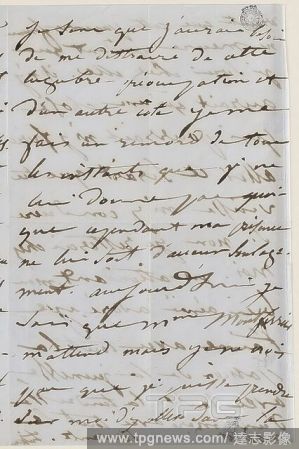 Je sens que j'aurais besoin
de me distraire de cette
lugubre préocupation et
d'un autre côté je me
fais un remords de tous
les instants que je ne
lui donne pas quoi
que cependant ma présence
ne lui soit d'aucun soulage-
ment aujourd'hui. je
sais que mme
m'attend mais je ne crois
pas que je puisse prendre
sur moi d'y aller
TPG
www.tpgnews.com/達志影像